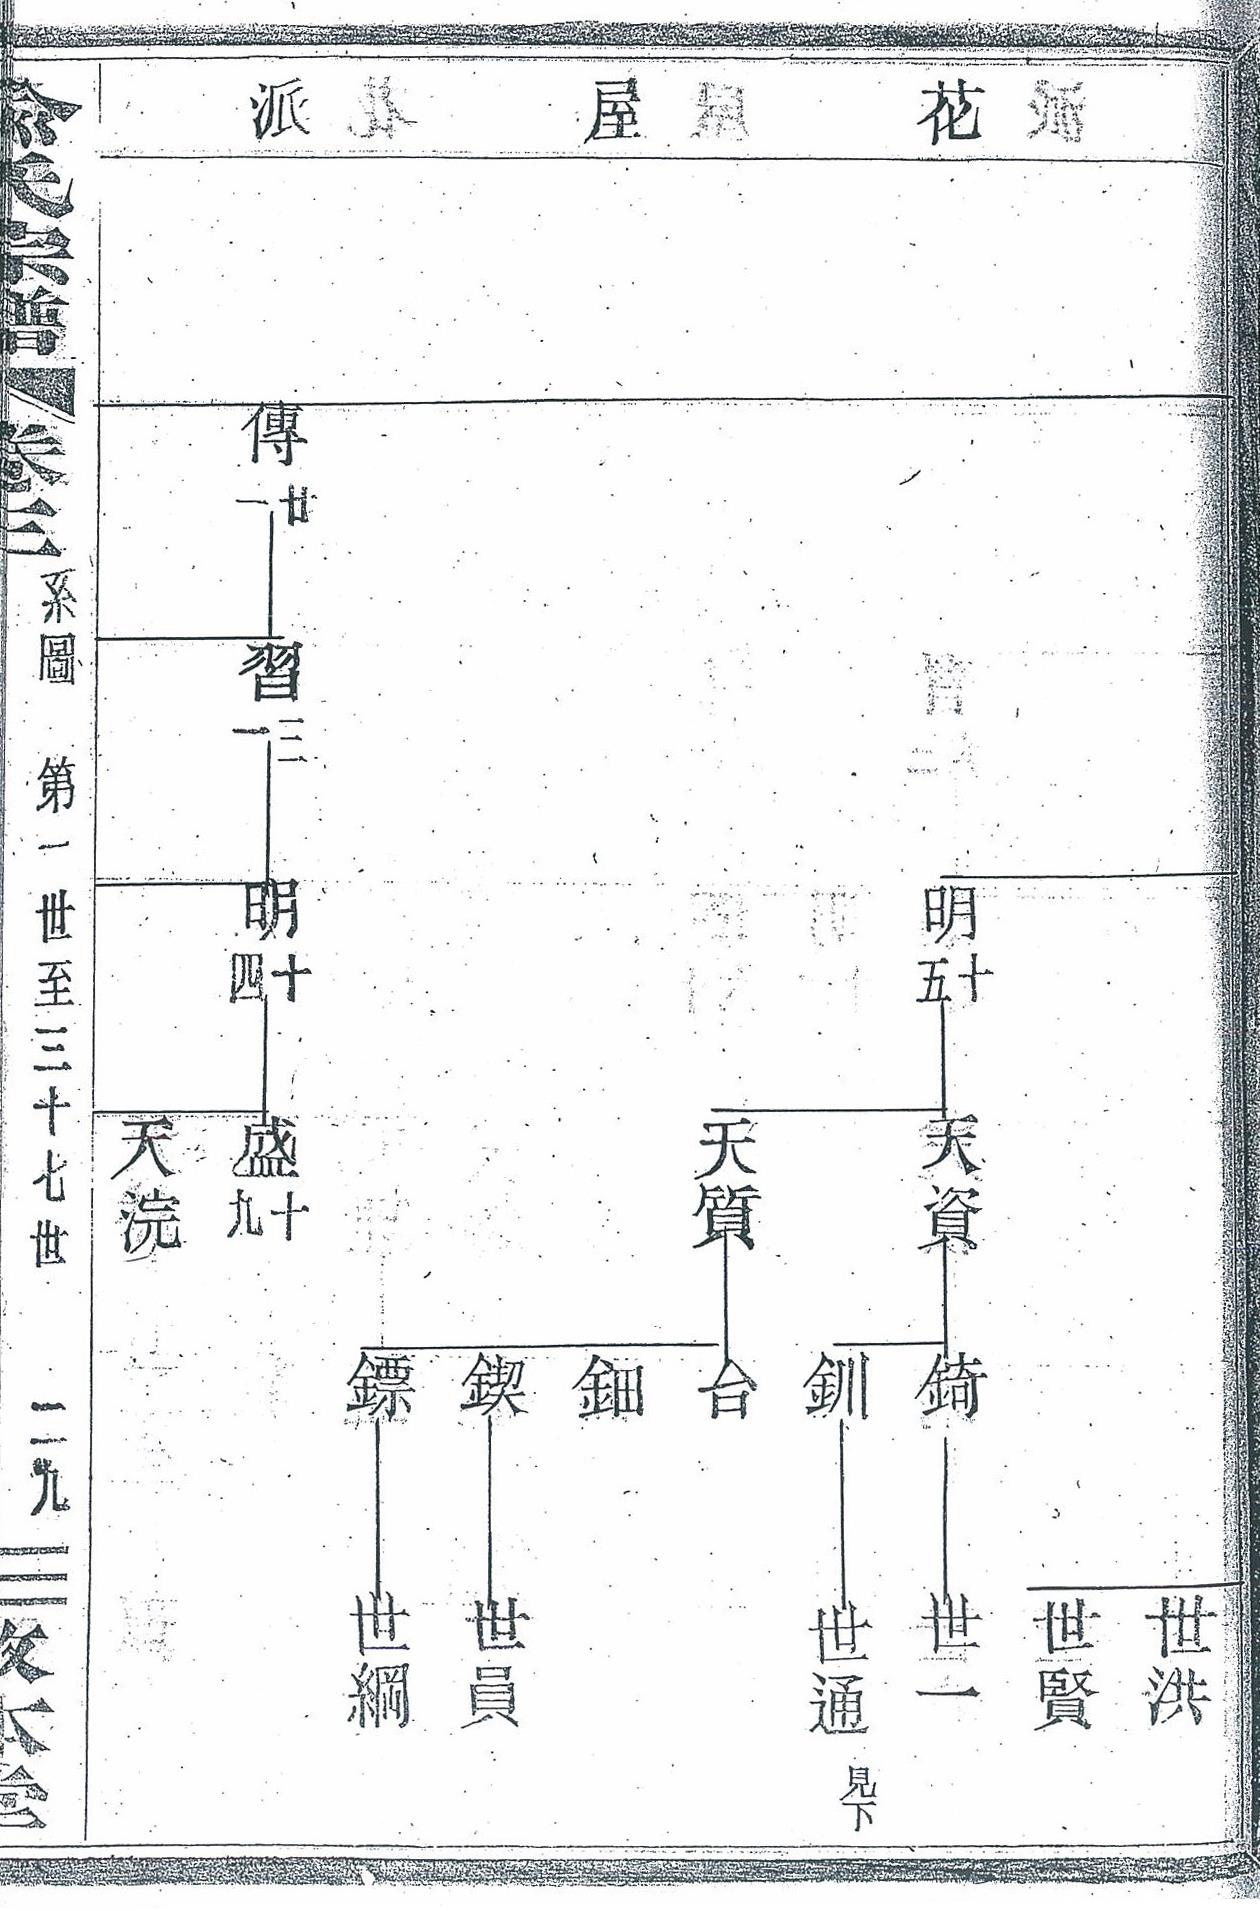 花屋派
世洪
世賢
明十五
天資
天質
錡
釧
台
鈿
鍥
鏢
世一
世通 見下
世員
世綱
傳廿一
習三一
明十四
盛十九
天浣
俞氏宗譜 卷三 系圖 第一世至三十七世 二九 敦本堂